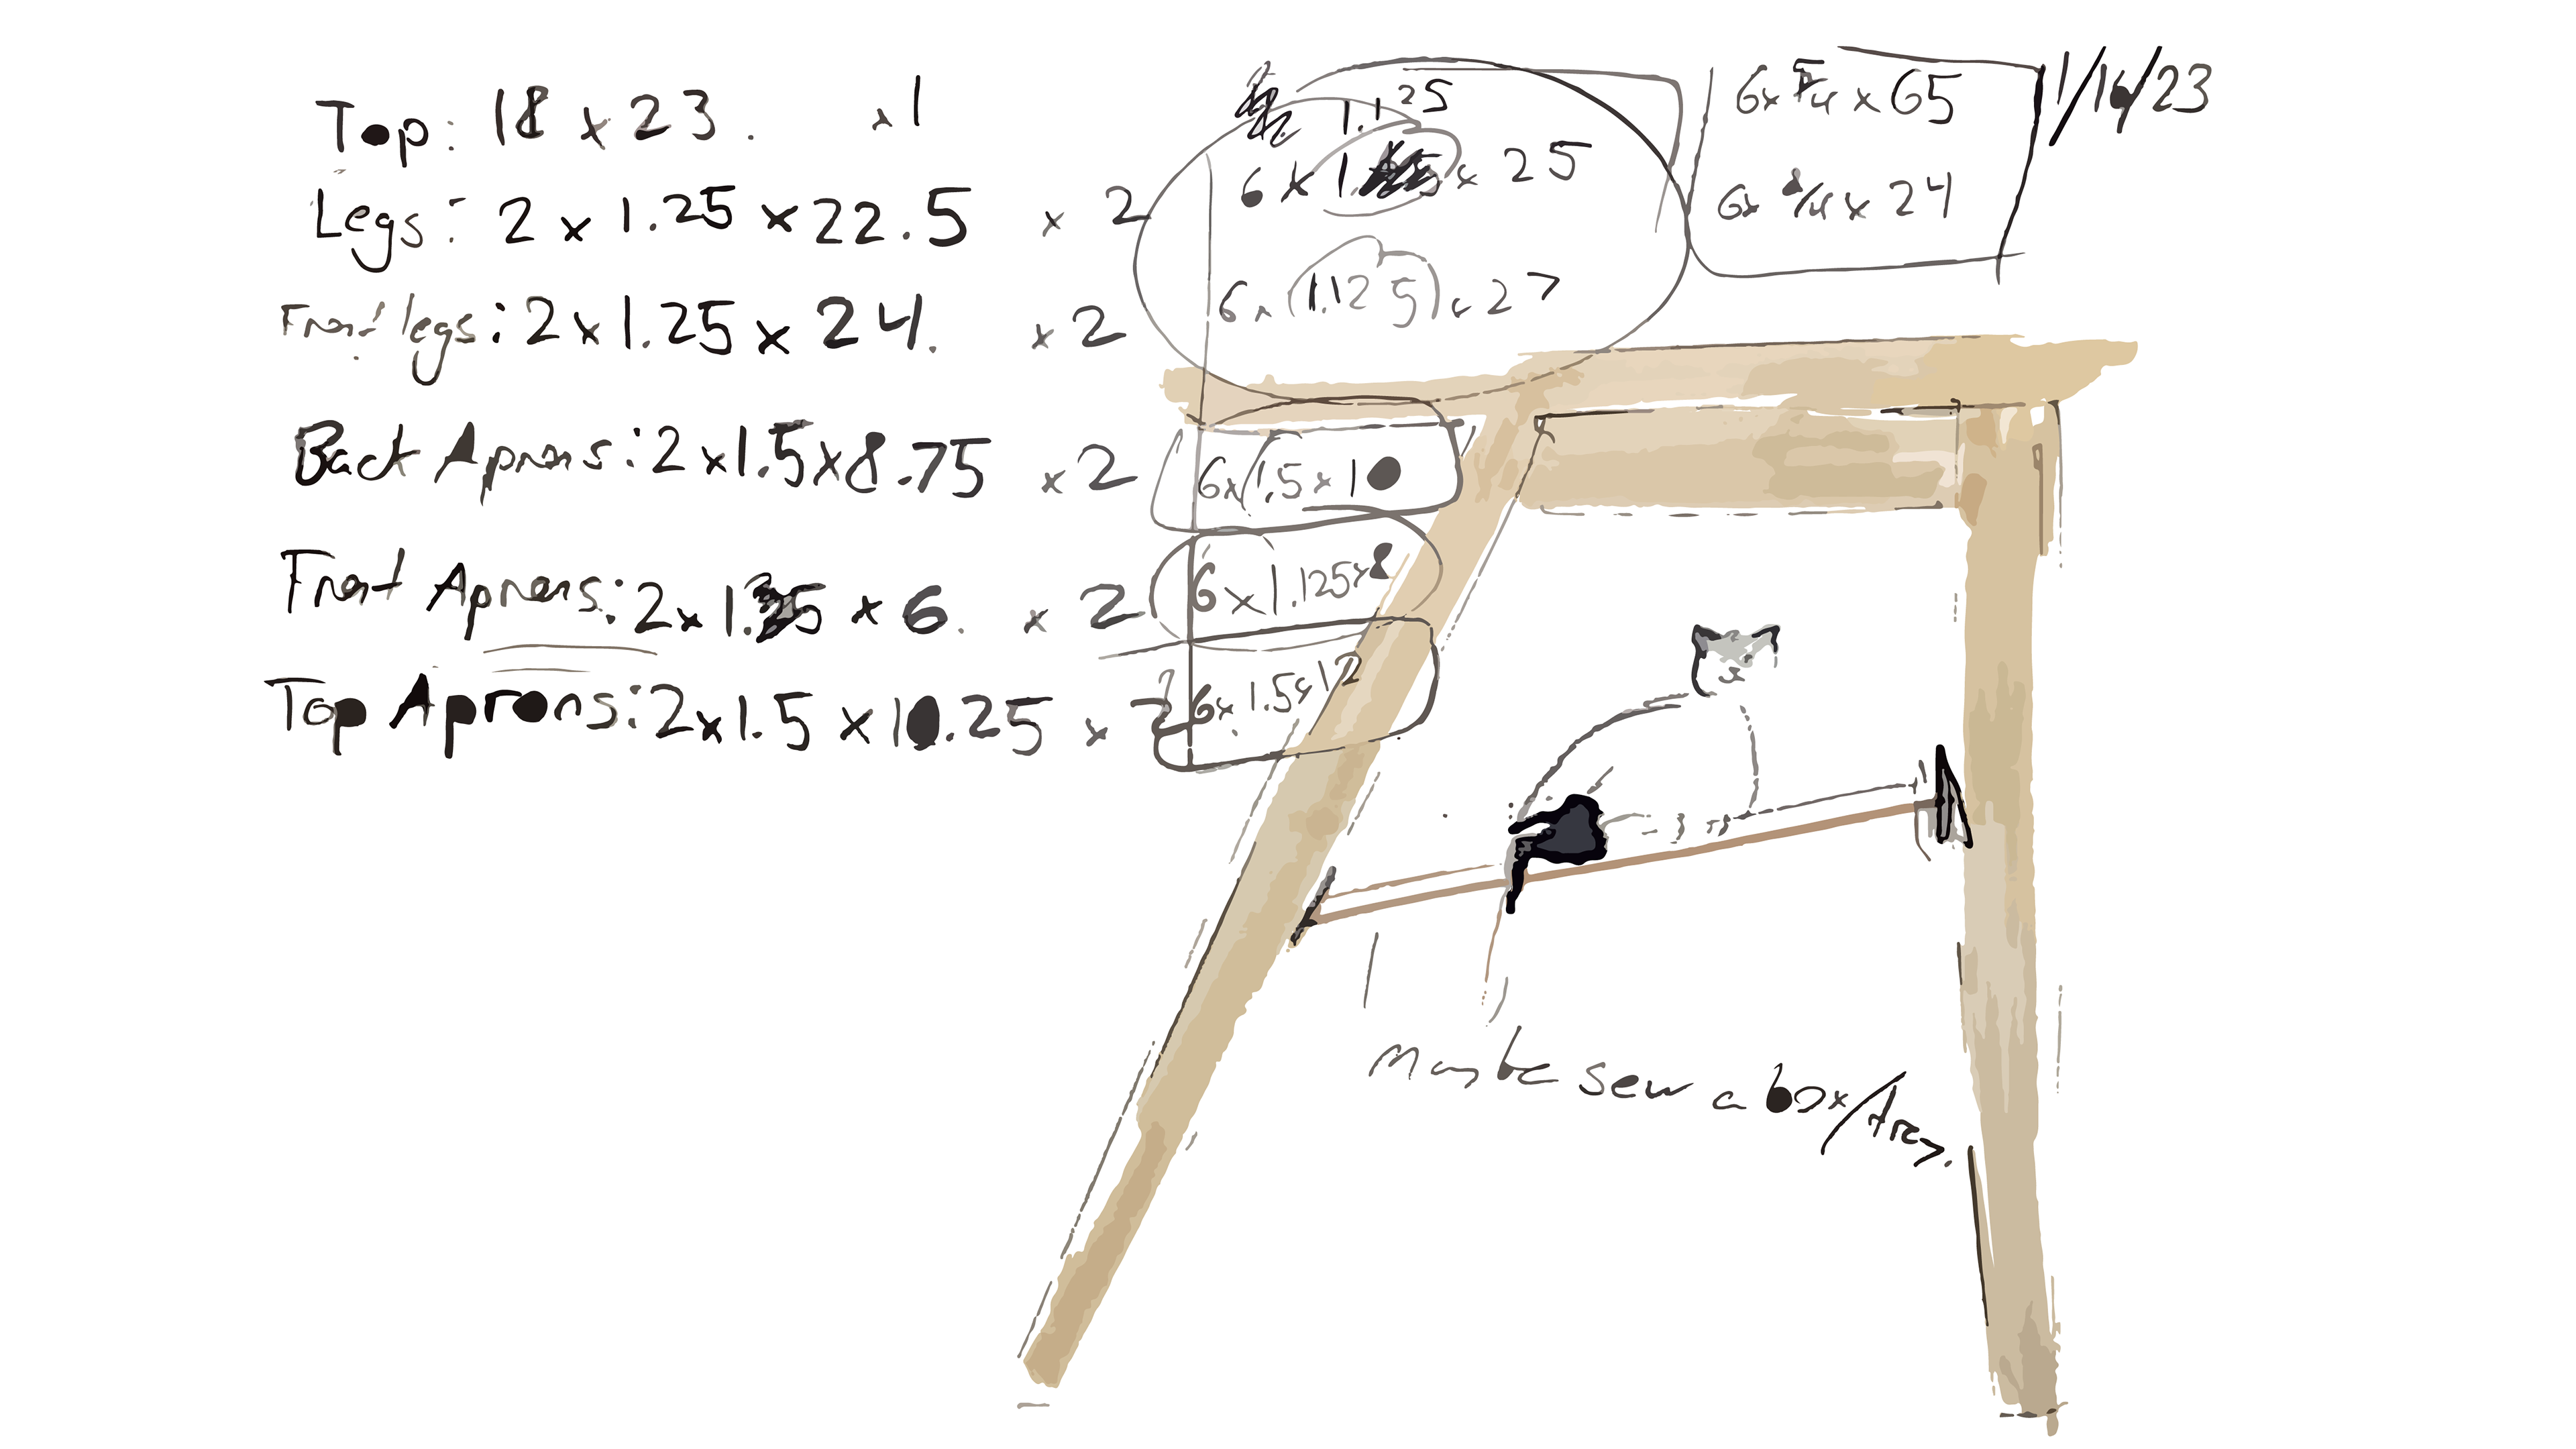 Top: 18 x 23. x1
Legs: 2 x 1.25 x 22.5 x 2
Front legs: 2 x 1.25 x 24. x 2
Back Aprons: 2 x 1.5 x 8.75 x 2
Front Aprons: 2 x 1. 5 x 6. x 2
Top Aprons: 2 x 1.5 x 10.25 x 2
1.125
6 x 1. x 25
6 x (1.125) x 27
6 x 1.5 x 10
6 x 1.125 x 8
6 x 1.5 x 12
6 x 5/4 x 65
6 x 8/4 x 24
1/16/23
Maybe sew a box/tray.